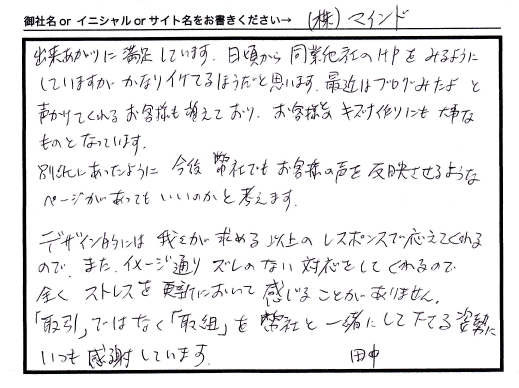 御社名 or イニシャル or サイト名をお書きください→ (株)マインド
出来あがりに満足しています。日頃から同業他社のHPをみるように
していますが かなりイケてるほうだと思います。最近はブログみたよ と
声かけてくれるお客様も増えており、お客様との キズナ作りにも 大事な
ものとなっています。
別紙にあったように 今後 弊社でも お客様の声を 反映させるような
ページがあっても いいのかと 考えます。
デザイン的には 我々が求める 以上の レスポンスで応えてくれる
ので、また、イメージ通り ズレのない 対応をしてくれるので
全く ストレスを 更新において 感じることがありません。
「取引」ではなく「取組」を 弊社と 一緒にして下さる 姿勢に
いつも 感謝しています。 田中